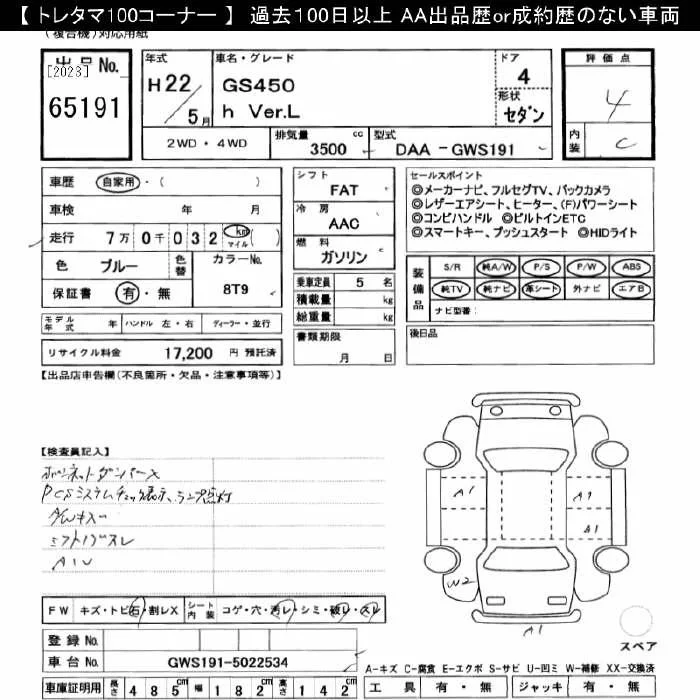 【 トレタマ100コーナー 】 過去100日以上 AA出品歴or成約歴のない車両
(複合機)対応用紙
出品 No.
[2023]
65191
年式
H22/5月
車名・グレード
GS450
h Ver.L
ドア
4
形状
セダン
評価点
4
内装
C
2WD・4WD
排気量
3500 cc
型式
DAA -GWS191
車歴 自家用・( )
車検 年 月
走行 7万0千032 km マイル ( )
色 ブルー 色替
カラーNo.
8T9
保証書 有・無
シフト
FAT
冷房
AAC
燃料
ガソリン
乗車定員 5 名
積載量 kg
総重量 kg
書類期限
月 日
セールスポイント
◎メーカーナビ、フルセグTV、バックカメラ
◎レザーエアシート、ヒーター、(F)パワーシート
◎コンビハンドル ◎ビルトインETC
◎スマートキー、プッシュスタート ◎HIDライト
装備品
S/R 純A/W P/S P/W ABS
純TV 純ナビ 革シート 外ナビ エアB
ナビ型番:
モデル年式 年 ハンドル 左・右 ディーラー・並行
リサイクル料金 17,200 円 預託済
後日品
【出品店申告欄(不良箇所・欠品・注意事項等)】
【検査員記入】
ボンネットダンパーX
PCSシステムチェック表示、ランプ点灯
A/Wキズ
シフトノブスレ
A1U
A1
A1
A1
W2
A1
スペア
FW キズ・トビ石・割レX シート内装 コゲ・穴・汚レ・シミ・破レ・スレ
登録 No.
車台 No. GWS191-5022534
A-キズ C-腐食 E-エクボ S-サビ U-凹ミ W-補修 XX-交換済
車庫証明用 長さ 485cm 幅 182cm 高さ 142cm
工具 有・無 ジャッキ 有・無